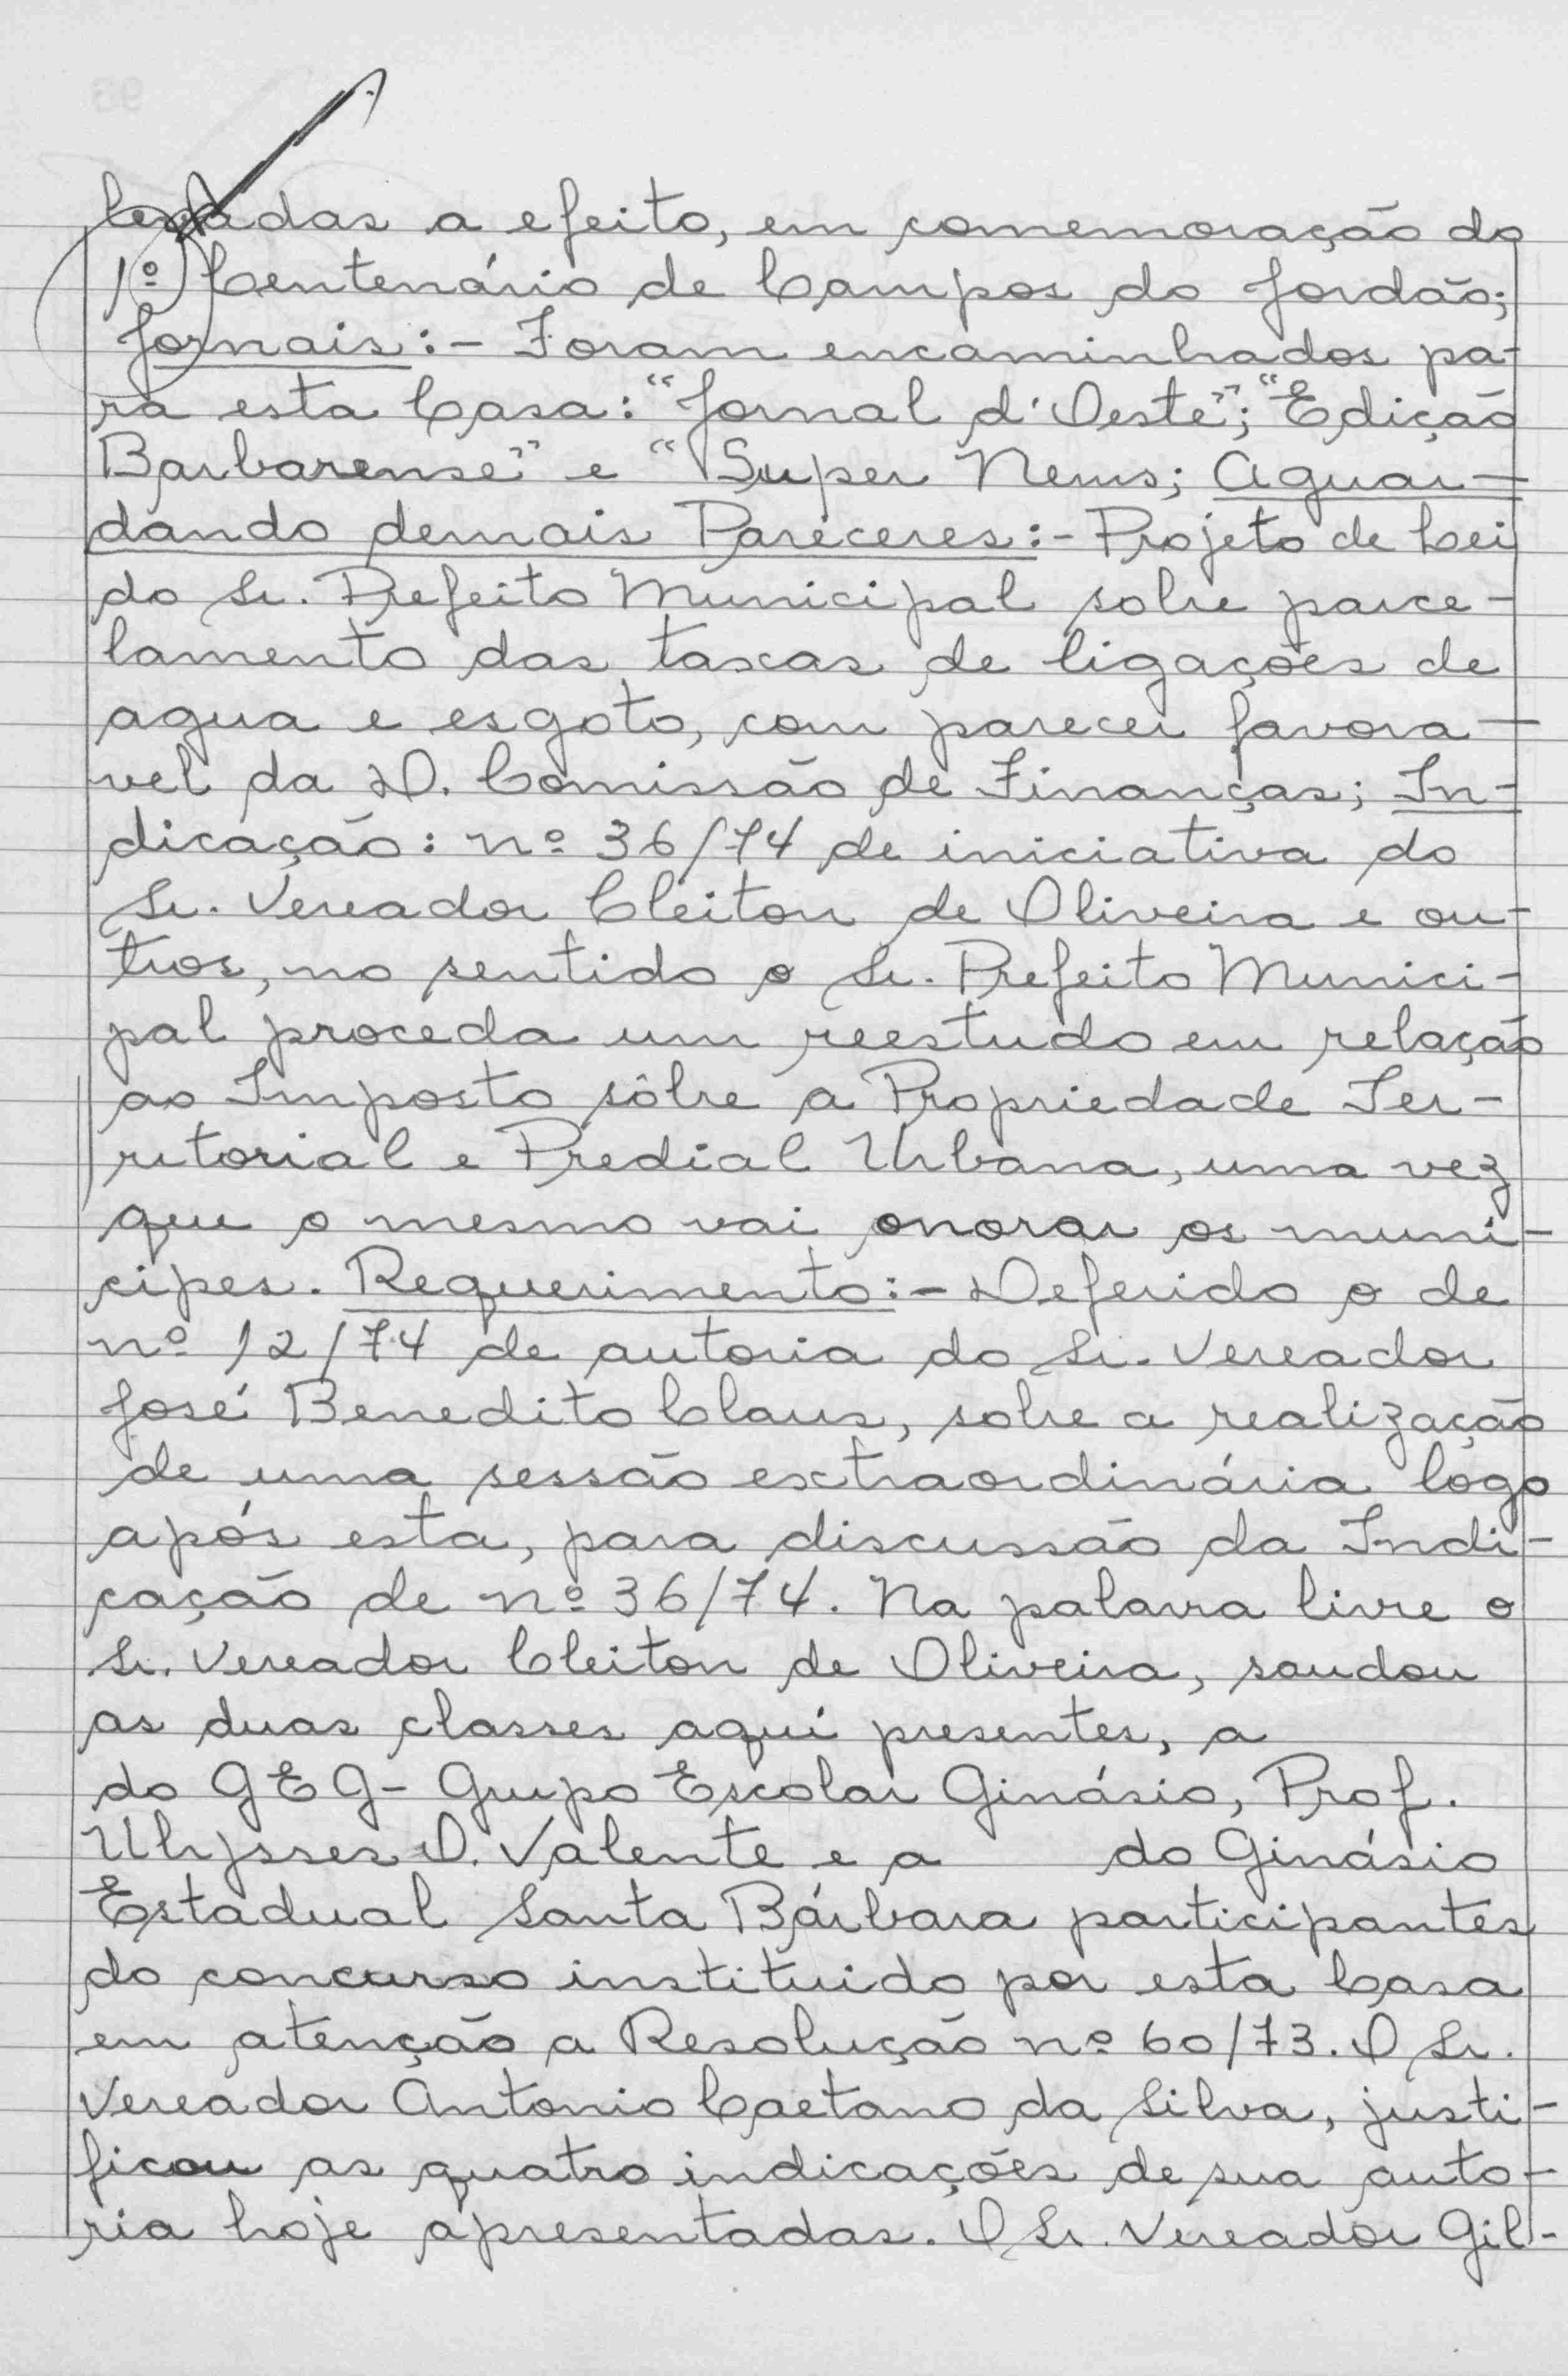 levadas a efeito, em comemoração do
1º Centenário de Campos do Jordão;
Jornais:- Foram encaminhados pa-
ra esta Casa: "Jornal d'Oeste"; "Edição
Barbarense" e "Super News; Aguar-
dando demais Pareceres:- Projeto de Lei
do Sr. Prefeito Municipal sobre parce-
lamento das taxas de ligações de
agua e esgoto, com parecer favora-
vel da D. Comissão de Finanças; In-
dicação: nº 36/74 de iniciativa do
Sr. Vereador Cleiton de Oliveira e ou-
tros, no sentido o Sr. Prefeito Munici-
pal proceda um reestudo em relação
ao Imposto sôbre a Propriedade Ter-
ritorial e Predial Urbana, uma vez
que o mesmo vai onorar os muni-
cipes. Requerimento:- Deferido o de
nº 12/74 de autoria do Sr. Vereador
José Benedito Claus, sobre a realização
de uma sessão extraordinária logo
após esta, para discussão da Indi-
cação de nº 36/74. Na palavra livre o
Sr. Vereador Cleiton de Oliveira, saudou
as duas classes aqui presentes, a
do GEG - Grupo Escolar Ginásio, Prof.
Ulysses O. Valente e a do Ginásio
Estadual Santa Bárbara participantes
do concurso instituido por esta Casa
em atenção a Resolução nº 60/73. O Sr.
Vereador Antonio Caetano da Silva, justi-
ficou as quatro indicações de sua auto-
ria hoje apresentadas. O Sr. Vereador Gil-